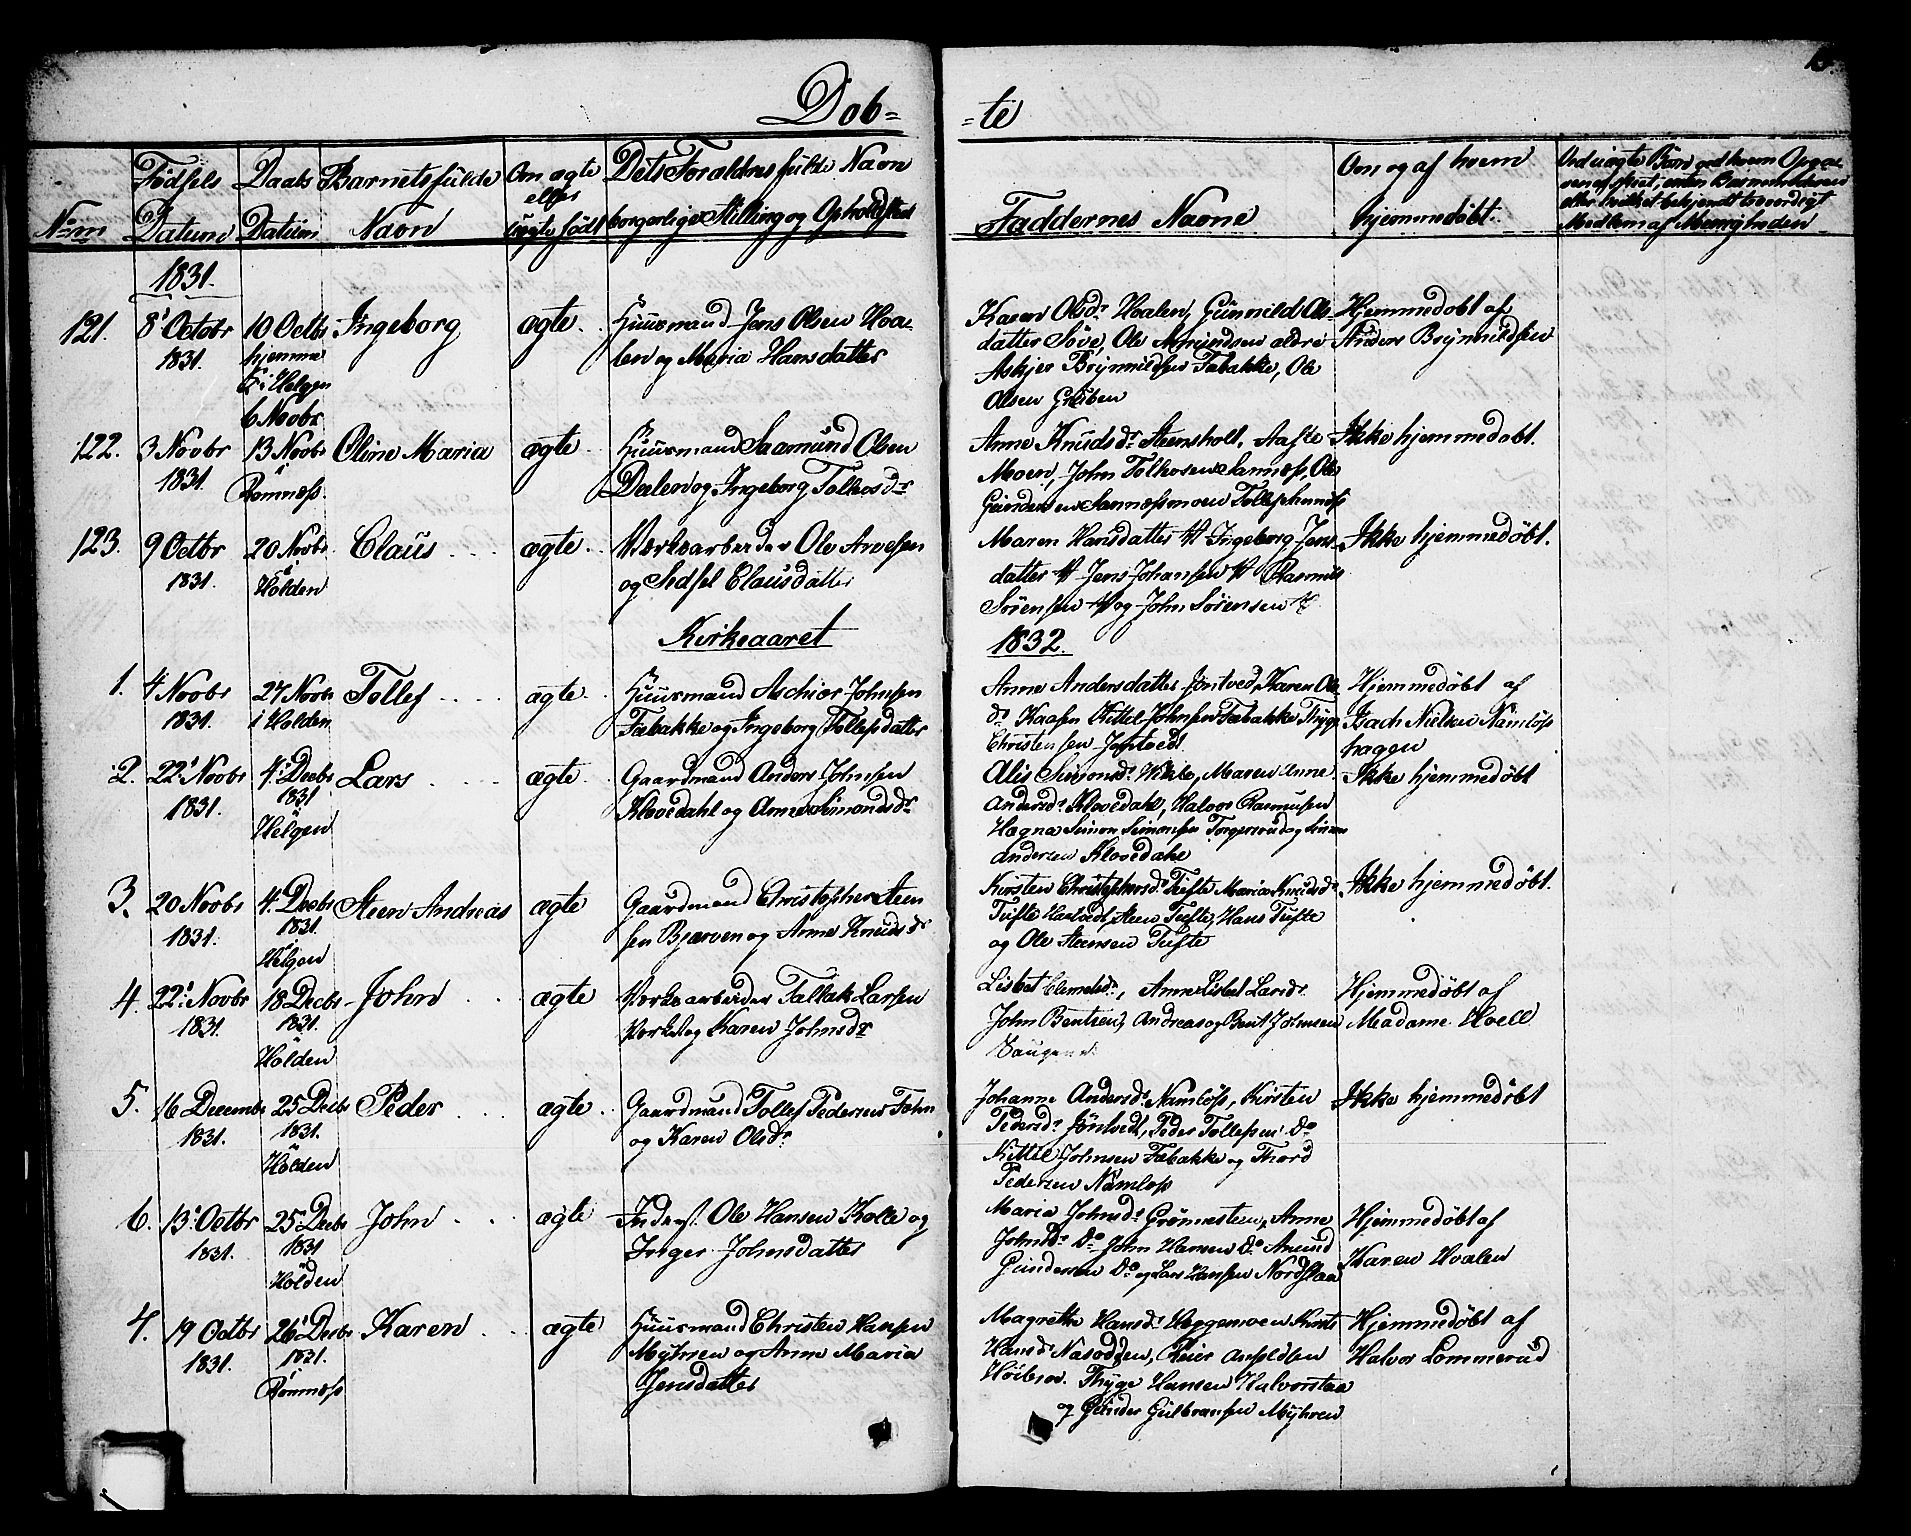 Døb- -te
13.
Num
Fødsels Datum
Daabs Datum
Barnets fulde Navn
Om ægte eller uægte født
Dets Forældres fulde Navn borgerlige Stilling og Opholdsted
Faddernes Navne
Om og af hvem hjemmedøbt.
1831.
121. 8' Octobr 1831. 10 Octbr hjemme i Helgen 6 Novbr
Ingeborg ægte
Huusmand Jens Olsen Hva-
len og Maria Hansdatter
Karen Olsdr Hvalen, Gunnild Ols-
datter Søve, Ole Amundsen ældre
Askjer Brynnildsen Tabakke, Ole
Olsen Gruben
Hjemmedøbt af
Anders Brynnildsen
122. 3 Novbr 1831. 13 Novbr i Romnæss.
Oline Maria ægte
Huusmand Saamund Olsen
og Ingeborg Tolvosdr
Anne Knudsdr Steensholt, Aaste
Moen, John Tolvosen Sannæss, Ole
Gundersen Sannæssmoen
Ikke hjemmedøbt.
123. 9 Octbr 1831. 20 Novbr i Holden
Claus ægte
Værksarbeider Ole Arvesen
og Sidsel Clausdatter
Maren Hansdatter W Ingeborg Jens-
datter W Jens Johansen W Rasmus
Sørensen W og John Sørensen W
Ikke hjemmedøbt.
Kirkeaaret 1832.
1. 4 Novbr 1831. 27 Novbr i Holden
Tollef ægte
Huusmand Aschier Johnsen
Tabakke og Ingeborg Tollefsdatter
Anne Andersdatter Jontved, Karen Ole
dr Kaasen Kittel Johnsen Tabakke Thyge
Christensen Jontvedt
Hjemmedøbt af
Isach Nielsen Namløs
hagen
2. 22' Novbr 1831. 4' Decbr 1831 i Helgen
Lars ægte
Gaardmand Anders Johnsen
Klovedahl og Anne Simonsdr
Alis Simonsdr Vibito, Maren Anne
Andersdr Klovedahl, Halvor Rasmusen
Hægna Simon Simonsen Torgersrud og Simon
Andersen Klovedahl
Ikke hjemmedøbt
3. 20 Novbr 1831. 4' Decbr 1831. i Helgen
Steen Andreas ægte
Gaardmand Christopher Steen
sen Bjerven og Anne Knudsdr
Kirsten Christophersdr Tufte Maria Knudsdr
Tufte Hartvedt, Steen Tufte, Hans Tufte
og Ole Steensen Tufte
Ikke hjemmedøbt.
4. 22' Novbr 1831. 18' Decbr 1831. i Holden
John ægte
Verksarbeider Tallak Larsen
Verket og Karen Johnsdr
Lisbet Clemetsdr, Anne Lisbet Larsdr
John Bentsen, Andreas og Bent Johnsen
Hjemmedøbt af
Madame Hoell
5. 16 Decembr 1831. 25' Decbr 1831. i Holden
Peder ægte
Gaardmand Tollef Pedersen
og Karen Olsdr
Johanne Andersdr Namløs, Kirsten
Pedersdr Jontvedt, Peder Tollefsen Do
Kittel Johnsen Tabakke og Thord
Pedersen Namløs
Ikke hjemmedøbt
6. 13' Octbr 1831. 25' Decbr 1831 i Holden
John ægte
Inderst. Ole Hansen Kolle og
Inger Johnsdatter
Maria Johnsdr Grønnesteen, Anne
Johnsdr Do John Hansen Do Amund
Gundersen Do og Lars Hansen Nordstaa
Hjemmedøbt af
Karen Hvalen
7. 19 Octbr 1831. 26' Decbr 1831. i Romnæss
Karen ægte
Huusmand Christen Hansen
Myhren og Anne Maria
Jensdatter
Magrethe Hansdr Heggemoen Kirsti
Hansdr Nasodden, Reier
Thyge Hansen Halvorstaa
og Gunder Gulbransen Myhren
Hjemmedøbt af
Halvor Lommerud